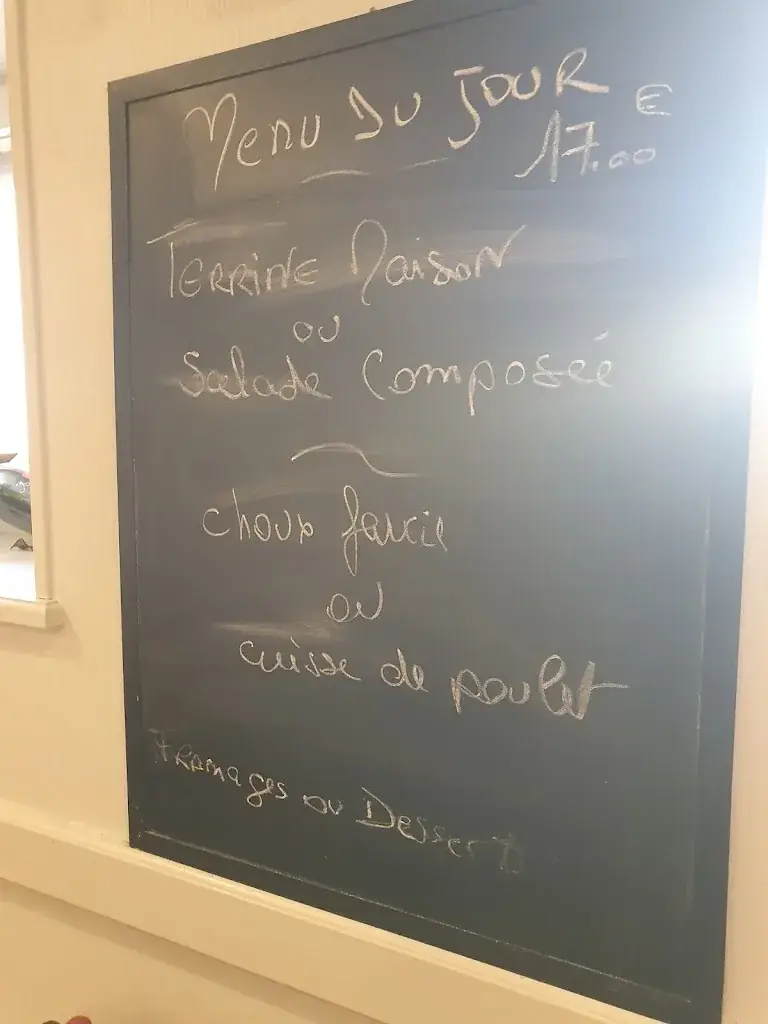 Menu Du Jour
17.00 €
Terrine Maison
ou
Salade Composée
choux farcie
ou
cuisse de poulet
Fromages ou Desserts